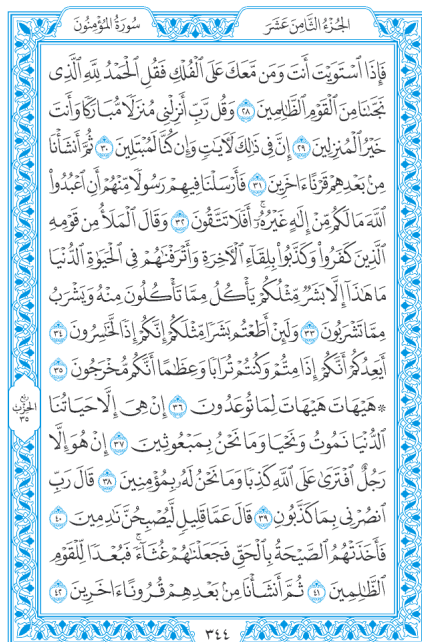 الجُزْءُ الثَّامِنَ عَشَرَ
سُورَةُ المُؤْمِنُونَ
فَإِذَا ٱسْتَوَيْتَ أَنتَ وَمَن مَّعَكَ عَلَى ٱلْفُلْكِ فَقُلِ ٱلْحَمْدُ لِلَّهِ ٱلَّذِى
نَجَّىٰنَا مِنَ ٱلْقَوْمِ ٱلظَّٰلِمِينَ ٢٨ وَقُل رَّبِّ أَنزِلْنِى مُنزَلًا مُّبَارَكًا وَأَنتَ
خَيْرُ ٱلْمُنزِلِينَ ٢٩ إِنَّ فِى ذَٰلِكَ لَـَٔايَٰتٍ وَإِن كُنَّا لَمُبْتَلِينَ ٣٠ ثُمَّ أَنشَأْنَا
مِنۢ بَعْدِهِمْ قَرْنًا ءَاخَرِينَ ٣١ فَأَرْسَلْنَا فِيهِمْ رَسُولًا مِّنْهُمْ أَنِ ٱعْبُدُوا۟
ٱللَّهَ مَا لَكُم مِّنْ إِلَٰهٍ غَيْرُهُۥٓ ۖ أَفَلَا تَتَّقُونَ ٣٢ وَقَالَ ٱلْمَلَأُ مِن قَوْمِهِ
ٱلَّذِينَ كَفَرُوا۟ وَكَذَّبُوا۟ بِلِقَآءِ ٱلْـَٔاخِرَةِ وَأَتْرَفْنَٰهُمْ فِى ٱلْحَيَوٰةِ ٱلدُّنْيَا
مَا هَٰذَآ إِلَّا بَشَرٌ مِّثْلُكُمْ يَأْكُلُ مِمَّا تَأْكُلُونَ مِنْهُ وَيَشْرَبُ
مِمَّا تَشْرَبُونَ ٣٣ وَلَئِنْ أَطَعْتُم بَشَرًا مِّثْلَكُمْ إِنَّكُمْ إِذًا لَّخَٰسِرُونَ ٣٤
أَيَعِدُكُمْ أَنَّكُمْ إِذَا مِتُّمْ وَكُنتُمْ تُرَابًا وَعِظَٰمًا أَنَّكُم مُّخْرَجُونَ ٣٥
۞ هَيْهَاتَ هَيْهَاتَ لِمَا تُوعَدُونَ ٣٦ إِنْ هِىَ إِلَّا حَيَاتُنَا
ٱلدُّنْيَا نَمُوتُ وَنَحْيَا وَمَا نَحْنُ بِمَبْعُوثِينَ ٣٧ إِنْ هُوَ إِلَّا
رَجُلٌ ٱفْتَرَىٰ عَلَى ٱللَّهِ كَذِبًا وَمَا نَحْنُ لَهُۥ بِمُؤْمِنِينَ ٣٨ قَالَ رَبِّ
ٱنصُرْنِى بِمَا كَذَّبُونِ ٣٩ قَالَ عَمَّا قَلِيلٍ لَّيُصْبِحُنَّ نَٰدِمِينَ ٤٠
فَأَخَذَتْهُمُ ٱلصَّيْحَةُ بِٱلْحَقِّ فَجَعَلْنَٰهُمْ غُثَآءً ۚ فَبُعْدًا لِّلْقَوْمِ
ٱلظَّٰلِمِينَ ٤١ ثُمَّ أَنشَأْنَا مِنۢ بَعْدِهِمْ قُرُونًا ءَاخَرِينَ ٤٢
ربع
الحزب
٣٥
٣٤٤